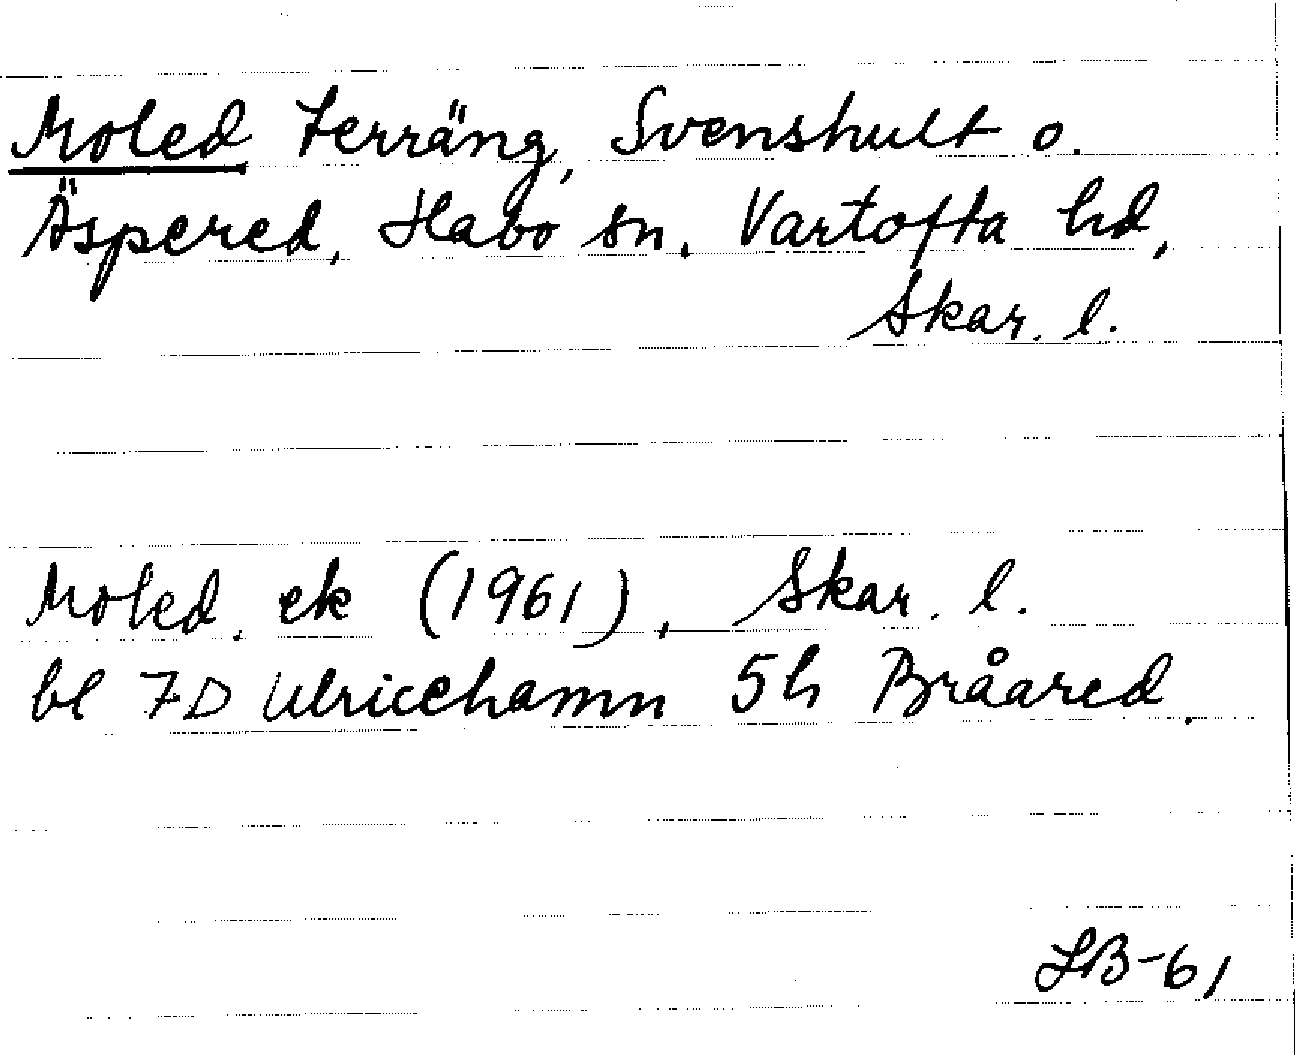 Moled Terräng, Svenshult o.
Äspered, Habo sn, Vartofta hd,
Skar. l.
Moled, ek (1961), Skar. l.
bl 7D Ulricehamn 5h Bråared.
LB-61